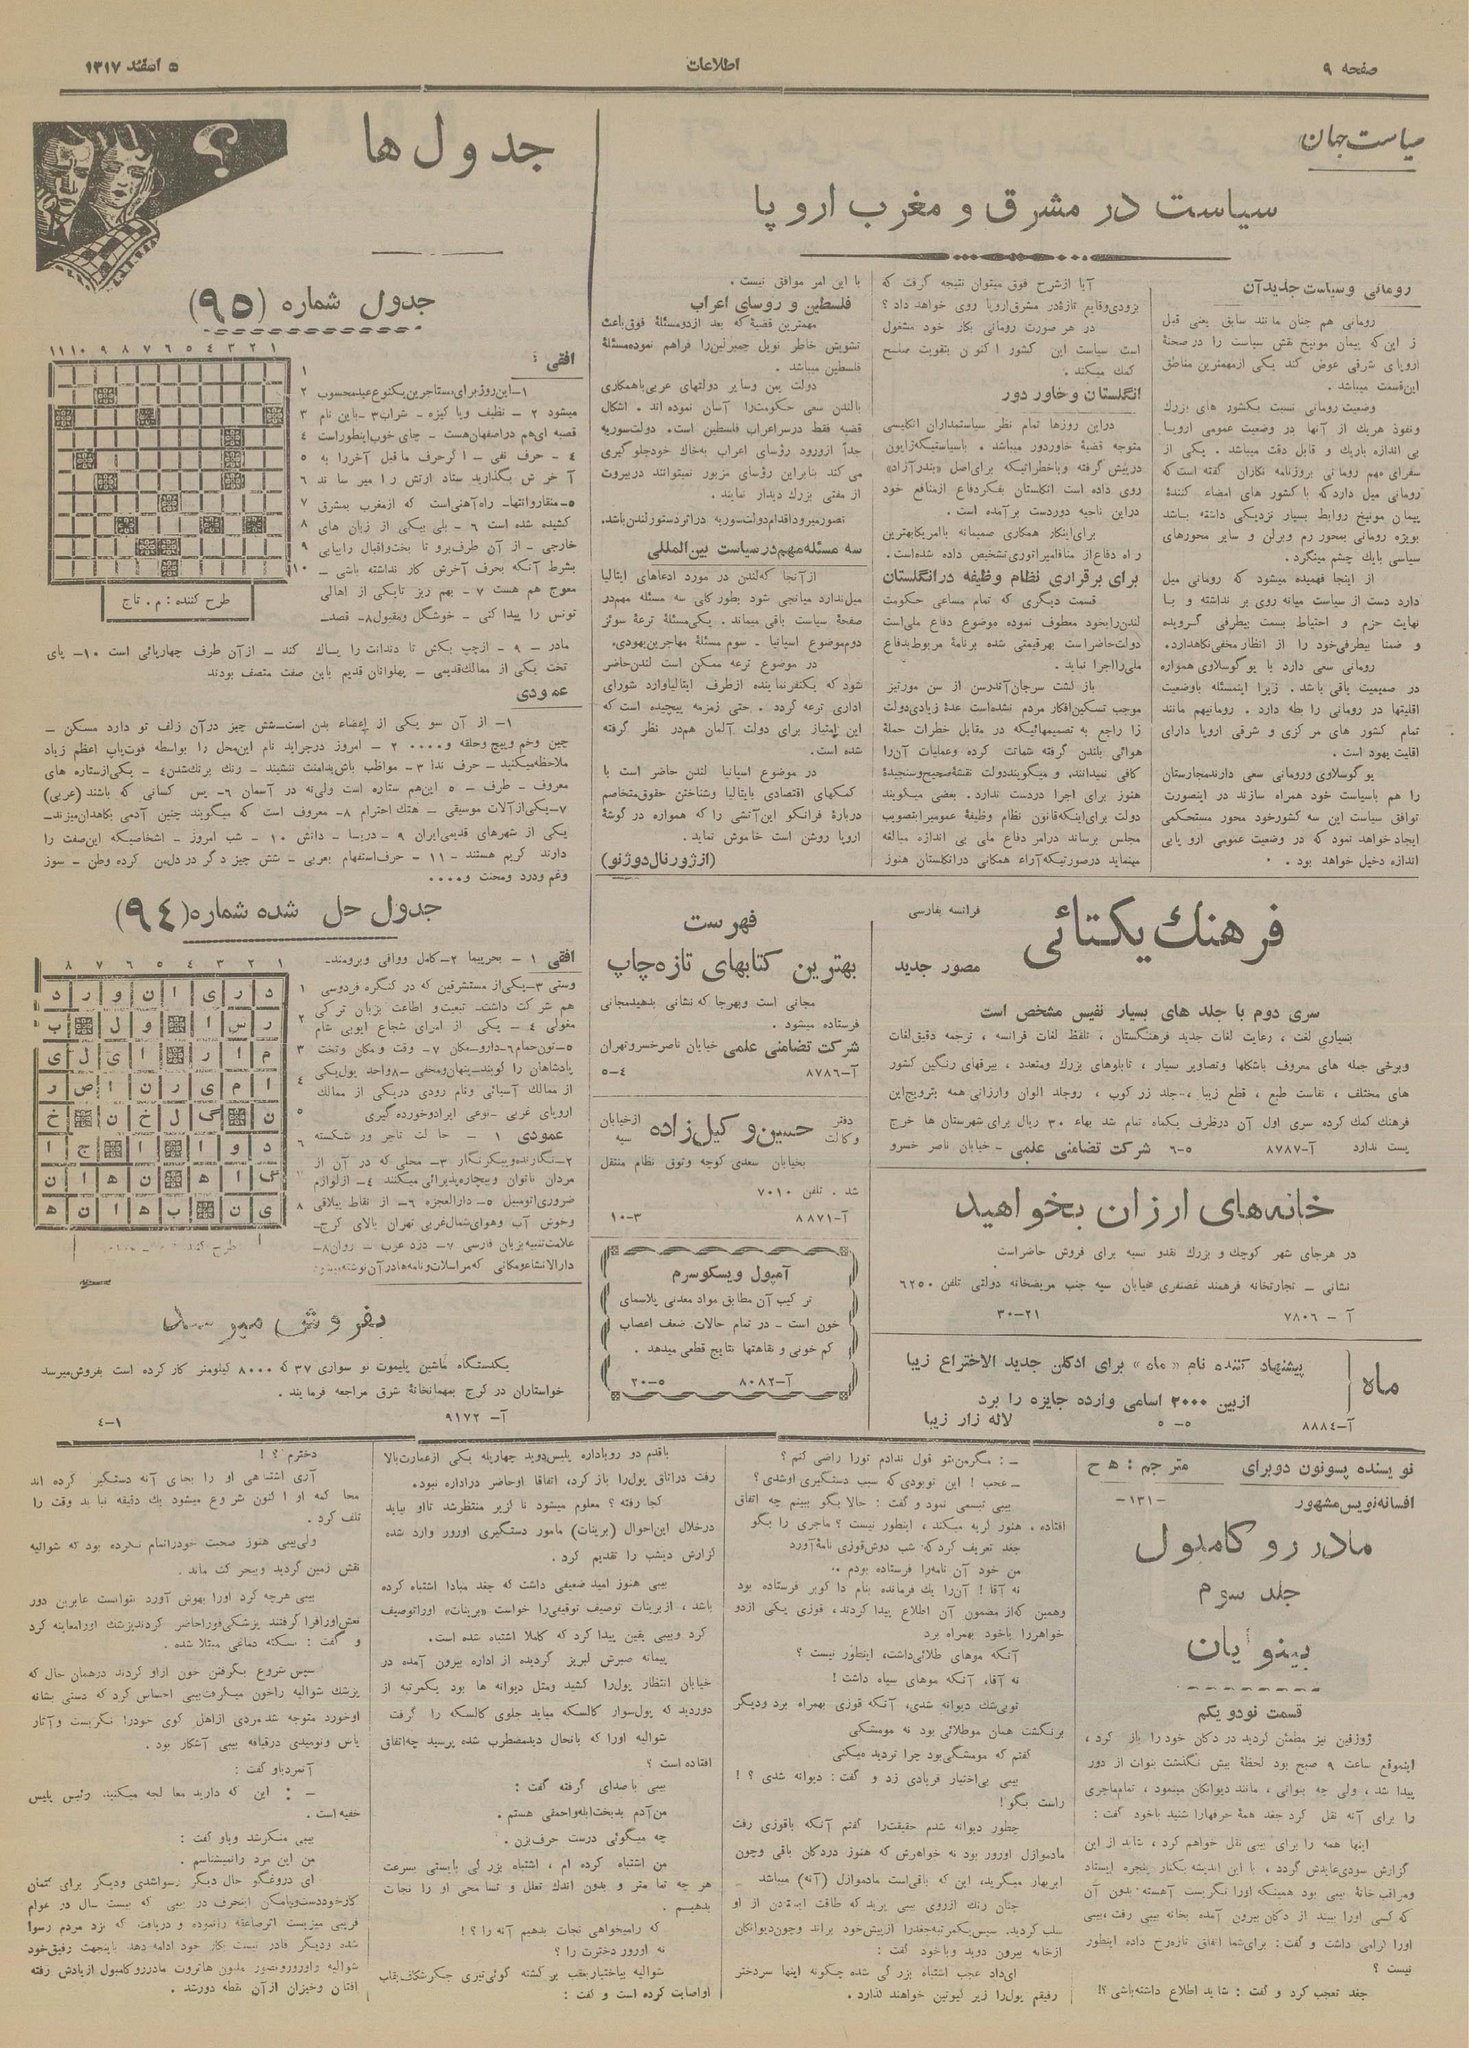 صفحه ۹
اطلاعات
۵ اسفند ۱۳۱۷
سیاست جهان
سیاست در مشرق و مغرب اروپا
رومانی و سیاست جدید آن
رومانی هم چنان مانند سابق یعنی قبل
از این که پیمان مونیخ نقش سیاست را در صحنهٔ
اروپای شرقی عوض کند یکی از مهمترین مناطق
این قسمت میباشد .
وضعیت رومانی نسبت بکشور های بزرك
ونفوذ هریك از آنها در وضعیت عمومی اروپا
بی اندازه باریك و قابل دقت میباشد . یکی از
سفرای مهم رومانی بروزنامه نگاران گفته است که
رومانی میل دارد که با کشور های امضاء کنندهٔ
پیمان مونیخ روابط بسیار نزدیکی داشته باشد
بویژه رومانی بمحور رم و برلن و سایر محورهای
سیاسی بایك چشم مینگرد .
از اینجا فهمیده میشود که رومانی میل
دارد دست از سیاست میانه روی بر نداشته و با
نهایت حزم و احتیاط بسمت بیطرفی گرویده
و ضمنا بیطرفی خود را از انظار مخفی نگاهدارد.
رومانی سعی دارد با یوگوسلاوی همواره
در صمیمیت باقی باشد . زیرا اینمسئله باوضعیت
اقلیتها در رومانی را بطه دارد . رومانیهم مانند
تمام کشور های مرکزی و شرقی اروپا دارای
اقلیت یهود است .
یوگوسلاوی ورومانی سعی دارند مجارستان
را هم باسیاست خود همراه سازند در اینصورت
توافق سیاست این سه کشور خود محور مستحکمی
ایجاد خواهد نمود که در وضعیت عمومی اروپا بی
اندازه دخیل خواهد بود .
آیا از شرح فوق میتوان نتیجه گرفت که
بزودی وقایع تازه در مشرق اروپا روی خواهد داد ؟
در هر صورت رومانی بکار خود مشغول
است سیاست این کشور اکنون بتقویت صلح
کمك میکند .
انگلستان و خاور دور
در این روزها تمام نظر سیاستمداران انگلیسی
متوجه قضیهٔ خاور دور میباشد . با سیاستیکه ژاپون
در پیش گرفته و با خطراتیکه برای اصل «بندر آزاد»
روی داده است انگلستان بفکر دفاع از منافع خود
در این ناحیه دوردست بر آمده است .
برای اینکار همکاری صمیمانه با امریکا بهترین
راه دفاع از منافع امپراتوری تشخیص داده شده است.
برای برقراری نظام وظیفه در انگلستان
قسمت دیگری که تمام مساعی حکومت
لندن را بخود معطوف نموده موضوع دفاع ملی است
دولت حاضر است بهر قیمتی شده برنامهٔ مربوط بدفاع
ملی را اجرا نماید .
باز گشت سرجان آندرسن از سن مورتیز
موجب تسکین افکار مردم نشده است عدهٔ زیادی دولت
را راجع به تصمیمهائیکه در مقابل خطرات حملهٔ
هوائی بلندن گرفته شماتت کرده و عملیات آن را
کافی نمیدانند، و میگویند دولت نقشهٔ صحیح و سنجیدهٔ
هنوز برای اجرا در دست ندارد . بعضی میگویند
دولت برای اینکه قانون نظام وظیفهٔ عمومی را بتصویب
مجلس برساند در امر دفاع ملی بی اندازه مبالغه
مینماید در صورتیکه آراء همگانی در انگلستان هنوز
با این امر موافق نیست .
فلسطین و روسای اعراب
مهمترین قضیهٔ که بعد از دو مسئلهٔ فوق باعث
تشویش خاطر نویل چمبرلین را فراهم نموده مسئلهٔ
فلسطین میباشد .
دولت یمن و سایر دولتهای عربی باهمکاری
بالندن سعی حکومت را آسان نموده اند . اشکال
قضیه فقط در سر اعراب فلسطین است. دولت سوریه
جداً از ورود رؤسای اعراب به خاك خود جلوگیری
می کند بنابر این رؤسای مزبور نمیتوانند در بیروت
از مفتی بزرك دیدار نمایند .
تصور میرود اقدام دولت سوریه در اثر دستور لندن باشد.
سه مسئله مهم در سیاست بین المللی
از آنجا که لندن در مورد ادعاهای ایتالیا
میل ندارد میانجی شود بطور کلی سه مسئله مهم در
صفحهٔ سیاست باقی میماند . یکی مسئلهٔ ترعهٔ سوئز
دوم موضوع اسپانیا . سوم مسئلهٔ مهاجرین یهودی.
در موضوع ترعه ممکن است لندن حاضر
شود که یکنفر نماینده از طرف ایتالیا وارد شورای
اداری ترعه گردد . حتی زمزمه پیچیده است که
این امتیاز برای دولت آلمان هم در نظر گرفته
شده است .
در موضوع اسپانیا لندن حاضر است با
کمکهای اقتصادی بایتالیا و شناختن حقوق متخاصم
دربارهٔ فرانکو این آتشی را که همواره در گوشهٔ
اروپا روشن است خاموش نماید .
(از ژورنال دوژنو)
جدول ها
جدول شماره (۹۵)
۱ ۲ ۳ ٤ ٥ ٦ ۷ ۸ ۹ ۱۰ ۱۱
۱
۲
۳
٤
٥
٦
۷
۸
۹
۱۰
طرح کننده : م . تاج
افقی :
۱- این روز برای مستاجرین یکنوع عید محسوب
میشود ۲ - نظیف و پا کیزه - شراب ۳ - باین نام
قصبه ای هم در اصفهان هست - چای خوب اینطور است
٤ - حرف نفی - اگر حرف ماقبل آخر را به
آخرش بگذارید ستاد ارتش را میر ساند
٥- منقار و انتها - راه آهنی است که از مغرب بمشرق
کشیده شده است ٦ - بلی بیکی از زبان های
خارجی - از آن طرف برو تا بخت و اقبال را بیابی
بشرط آنکه بحرف آخرش کار نداشته باشی -
معوج هم هست ۷ - بهم ریز تا یکی از اهالی
تونس را پیدا کنی - خوشگل و مقبول ۸ - قصد -
مادر - ۹ - از چپ بکش تا دندانت را پاك کند - از آن طرف چهارپائی است ۱۰- پای
تخت یکی از ممالك قدیمی - پهلوانان قدیم باین صفت متصف بودند
عمودی
۱- از آن سو یکی از اعضاء بدن است - شش چیز در آن زلف تو دارد مسکن -
چین و خم و پیچ و حلقه و.... ۲ - امروز در جراید نام این محل را بواسطه فوت پاپ اعظم زیاد
ملاحظه میکنید - حرف ندا ۳- مواظب باش بندامت ننشیند - رنك برنك شدن ٤ - یکی از ستاره های
معروف - طرف - ٥ این هم ستاره است ولی نه در آسمان ٦- پس کسانی که باشند (عربی)
۷- یکی از آلات موسیقی - هتك احترام ۸- معروف است که میگویند چنین آدمی بکاهدان میزند-
یکی از شهرهای قدیمی ایران ۹ - دریسا - دانش ۱۰ - شب امروز - اشخاصیکه این صفت را
دارند کریم هستند - ۱۱ - حرف استفهام بعربی - شش چیز دگر در دل من کرده وطن - سوز
و غم و درد و محنت و....
جدول حل شده شماره (۹٤)
۱ ۲ ۳ ٤ ٥ ٦ ۷ ۸
د ر ی ا ن و ر د
ر س ا و ل ب
م ا ر ا ی ل ی
ا م ی ر ن ا ص ر
ن گ ل خ ن خ
د و ا ج ا
گ ا ه ن ه ا ن
ی ن ب ه ا ن ه
افقی ۱ - بحر پیما ۲- کامل و وافی و برومند-
وستی ۳- یکی از مستشرقین که در کنگره فردوسی
هم شرکت داشت- تبعیت و اطاعت بزبان ترکی
مغولی ٤ - یکی از امرای شجاع ایوبی شام
٥- تون حمام ٦- دارو - مکان ۷- وقت و مکان و تخت
پادشاهان را گویند- پنهان و مخفی - ۸ واحد پول یکی
از ممالك آسیائی و نام رودی در یکی از ممالك
اروپای غربی - نوعی ایراد و خورده گیری
عمودی ۱ - حالت تاجر ور شکسته
۲- نگارنده و پیکر نگار ۳- محلی که در آن از
مردان ناتوان و بیچاره پذیرائی میکنند ٤ - از لوازم
ضروری اتومبیل ٥- دارالعجزه ٦- از نقاط ییلاقی
و خوش آب و هوای شمال غربی تهران بالای کرج-
علامت تثنیه بزبان فارسی ۷- دزد عرب - روان ۸-
دارالانشاء و مکانی که مراسلات و نامه ها در آن نوشته میشود
بفروش میرسد
یکدستگاه ماشین پلیموت نو سواری ۳۷ که ۸۰۰۰ کیلومتر کار کرده است بفروش میرسد
خواستاران در کرج بمهمانخانهٔ شرق مراجعه فرمایند .
آ- ۹۱۷۲
۱-٤
فرهنك یکتائی
فرانسه بفارسی
مصور جدید
سری دوم با جلد های بسیار نفیس مشخص است
بسیاری لغت ، رعایت لغات جدید فرهنگستان ، تلفظ لغات فرانسه ، ترجمه دقیق لغات
و برخی جمله های معروف باشکلها و تصاویر بسیار ، تابلوهای بزرك و متعدد ، بیرقهای رنگین کشور
های مختلف ، نفاست طبع ، قطع زیبا ، - جلد زر کوب ، رو جلد الوان و ارزانی همه بترویج این
فرهنك کمك کرده سری اول آن در ظرف یکماه تمام شد بهاء ۳۰ ریال برای شهرستان ها خرج
پست ندارد آ-۸۷۸۷ ٥-٦ شرکت تضامنی علمی - خیابان ناصر خسرو
فهرست
بهترین کتابهای تازه چاپ
مجانی است و بهرجا که نشانی بدهید مجانی
فرستاده میشود .
شرکت تضامنی علمی خیابان ناصر خسرو تهران
آ-۸۷۸٦ ٤-٥
دفتر وکالت حسین وکیل زاده از خیابان سپه
بخیابان سعدی کوچه وثوق نظام منتقل
شد . تلفن ۷۰۱۰
آ-۸۸۷۱ ۳-۱۰
آمپول ویسکوسرم
تر کیب آن مطابق مواد معدنی پلاسمای
خون است - در تمام حالات ضعف اعصاب
کم خونی و نقاهتها نتایج قطعی میدهد .
آ-۸۰۸۲ ٥-۲۰
خانه های ارزان بخواهید
در هر جای شهر کوچك و بزرك نقد و نسیه برای فروش حاضر است
نشانی - تجارتخانه فرهمند غضنفری خیابان سپه جنب مریضخانه دولتی تلفن ٦۲٥۰
آ - ۷۸۰٦ ۲۱-۳۰
ماه
پیشنهاد کننده نام «ماه» برای ادکلن جدید الاختراع زیبا
از بین ۲۰۰۰ اسامی وارده جایزه را برد
آ-۸۸۸٤ ٥-٥ لاله زار زیبا
نویسنده پسونون دوبرای مترجم : ه ح
افسانه نویس مشهور -۱۳۱-
مادر رو کامبول
جلد سوم
بینوایان
قسمت نود و یکم
ژوزفین نیز مطمئن گردید در دکان خود را باز کرد ،
اینموقع ساعت ۹ صبح بود لحظهٔ بیش نگذشت بنوات از دور
پیدا شد ، ولی چه بنواتی ، مانند دیوانگان مینمود ، تمام ماجری
را برای آنه نقل کرد جغد همهٔ حرفها را شنید با خود گفت :
اینها همه را برای بیبی نقل خواهم کرد ، شاید از این
گزارش سودی عایدش گردد ، با این اندیشه بکنار پنجره ایستاد
و مراقب خانهٔ بیبی بود همینکه او را نگریست آهسته بدون آن
که کسی او را ببیند از دکان بیرون آمده بخانه بیبی رفت، بیبی
او را گرامی داشت و گفت : برای شما اتفاق تازه رخ داده اینطور
نیست ؟
جغد تعجب کرد و گفت : شاید اطلاع داشته باشی ؟!
- : مگر من بتو قول ندادم تو را راضی کنم ؟
- عجب ! این تو بودی که سبب دستگیری او شدی ؟
بیبی تبسمی نمود و گفت : حالا بگو ببینم چه اتفاق
افتاده . هنوز گریه میکند ، اینطور نیست ؟ ماجری را بگو
جغد تعریف کرد که شب دوش قوزی نامهٔ آورد
من خود آن نامه را فرستاده بودم ..
نه آقا ! آن را یك فرمانده بنام داکوبر فرستاده بود
و همین که از مضمون آن اطلاع پیدا کردند، قوزی یکی از دو
خواهر را با خود بهمراه برد
آنکه موهای طلائی داشت، اینطور نیست ؟
نه آقا، آنکه موهای سیاه داشت !
تو بی شك دیوانه شدی، آنکه قوزی بهمراه برد و دیگر
برنگشت همان موطلائی بود نه مومشکی
گفتم که مومشکی بود چرا تردید میکنی
بیبی بی اختیار فریادی زد و گفت : دیوانه شدی ؟ !
راست بگو !
چطور دیوانه شدم حقیقت را گفتم آنکه باقوزی رفت
مادموازل اورور بود نه خواهرش که هنوز در دکان باقی و چون
ابر بهار میگرید، این که باقی است مادموازل (آنه) میباشد
چنان رنك از روی بیبی پرید که طاقت ایستادن از او
سلب گردید. سپس یکمرتبه جغد را از پیش خود براند و چون دیوانگان
از خانه بیرون دوید و با خود گفت :
ای داد عجب اشتباه بزرگی شده چگونه اینها سر دختر
رفیقم پول را زیر گیوتین خواهند گذارد .
با قدم دو رو باداره پلیس دوید چهار پله یکی از عمارت بالا
رفت در اتاق پول را باز کرد، اتفاقا او حاضر در اداره نبود.
کجا رفته ؟ معلوم میشود ناگزیر منتظر شد تا او بیاید
در خلال این احوال (برینات) مامور دستگیری اورور وارد شده
گزارش دیشب را تقدیم کرد .
بیبی هنوز امید ضعیفی داشت که جغد مبادا اشتباه کرده
باشد ، از برینات توصیف توقیفی را خواست «برینات» او را توصیف
کرد و بیبی یقین پیدا کرد که کاملا اشتباه شده است.
پیمانه صبرش لبریز گردیده از اداره بیرون آمده در
خیابان انتظار پول را کشید و مثل دیوانه ها بود یکمرتبه از
دور دید که پول سوار کالسکه میاید جلوی کالسکه را گرفت
شوالیه او را که بانحال دید مضطرب شده پرسید چه اتفاق
افتاده است ؟
بیبی با صدای گرفته گفت :
من آدم بدبخت ابله و احمقی هستم .
چه میگوئی درست حرف بزن .
من اشتباه کرده ام ، اشتباه بزرگی بایستی بسرعت
هر چه تمامتر و بدون اندك تعلل و تسامحی او را نجات
بدهیم .
که را میخواهی نجات بدهیم آنه را ؟ !
نه اورور دخترت را ؟
شوالیه بی اختیار بعقب برگشته گوئی تیری جگر شکاف بقلب
او اصابت کرده است و گفت :
دخترم ؟ !
آری اشتباهی او را بجای آنه دستگیر کرده اند
محا کمه او اکنون شروع میشود یك دقیقه نباید وقت را
تلف کرد .
ولی بیبی هنوز صحبت خود را تمام نکرده بود که شوالیه
نقش زمین گردید و بیحرکت ماند .
بیبی هر چه کرد او را بهوش آورد نتوانست عابرین دور
نعش او را فرا گرفتند پزشکی فورا حاضر کردند پزشك او را معاینه کرد
و گفت : سکته دماغی مبتلا شده .
سپس شروع بگرفتن خون از او کردند در همان حال که
پزشك شوالیه را خون میگرفت بیبی احساس کرد که دستی بشانه
او خورد متوجه شد مردی از اهل کوی خود را نگریست و آثار
یاس و نومیدی در قیافه بیبی آشکار بود .
آنمرد باو گفت :
- : این که دارید معالجه میکنید رئیس پلیس
خفیه است .
بیبی منکر شد و باو گفت :
من این مرد را نمیشناسم .
ای دروغگو حال دیگر رسوا شدی و دیگر برای کتمان
شوالیه و اورور و تصور ملدون هانروت مادر رو کامبول از یادش رفته
افتان و خیزان از آن نقطه دور شد .